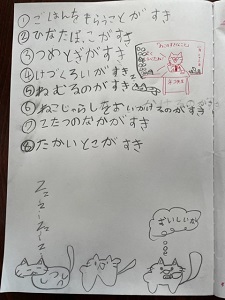 ①ごはんちもらうことがすき
②ひなたぼっこがすき
③つめとぎがすき
④けづくろいがすき
⑤ねむるのがすき
⑥ねこじゃらしをおいかけるのがすき
⑦こたつのなかがすき
⑧たかいとこがすき
おいしいな